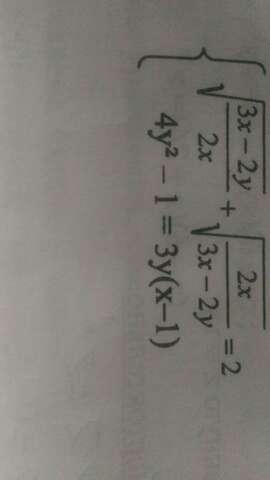 √((3x − 2y)/(2x)) + √((2x)/(3x − 2y)) = 2
4y² − 1 = 3y(x−1)